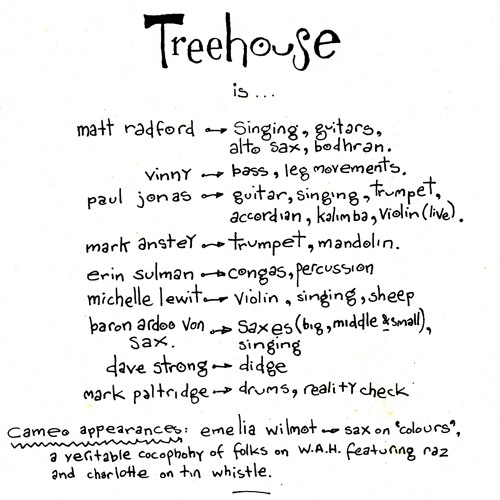 Treehouse
is...
matt radford → singing, guitars,
alto sax, bodhran.
vinny → bass, leg movements.
paul jonas → guitar, singing, trumpet,
accordian, kalimba, violin (live).
mark anstey → trumpet, mandolin.
erin sulman → congas, percussion
michelle lewit → violin, singing, sheep
baron ardoo von → saxes (big, middle & small),
sax. singing
dave strong → didge
mark paltridge → drums, reality check
cameo appearances: emelia wilmot → sax on "colours",
a veritable cocophony of folks on W.A.H. featuring raz
and charlotte on tin whistle.